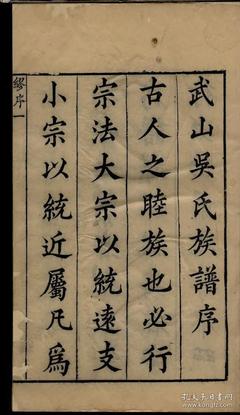 武山吳氏族譜序
古人之睦族也必行
宗法大宗以統遠支
小宗以統近屬凡爲
繆序一